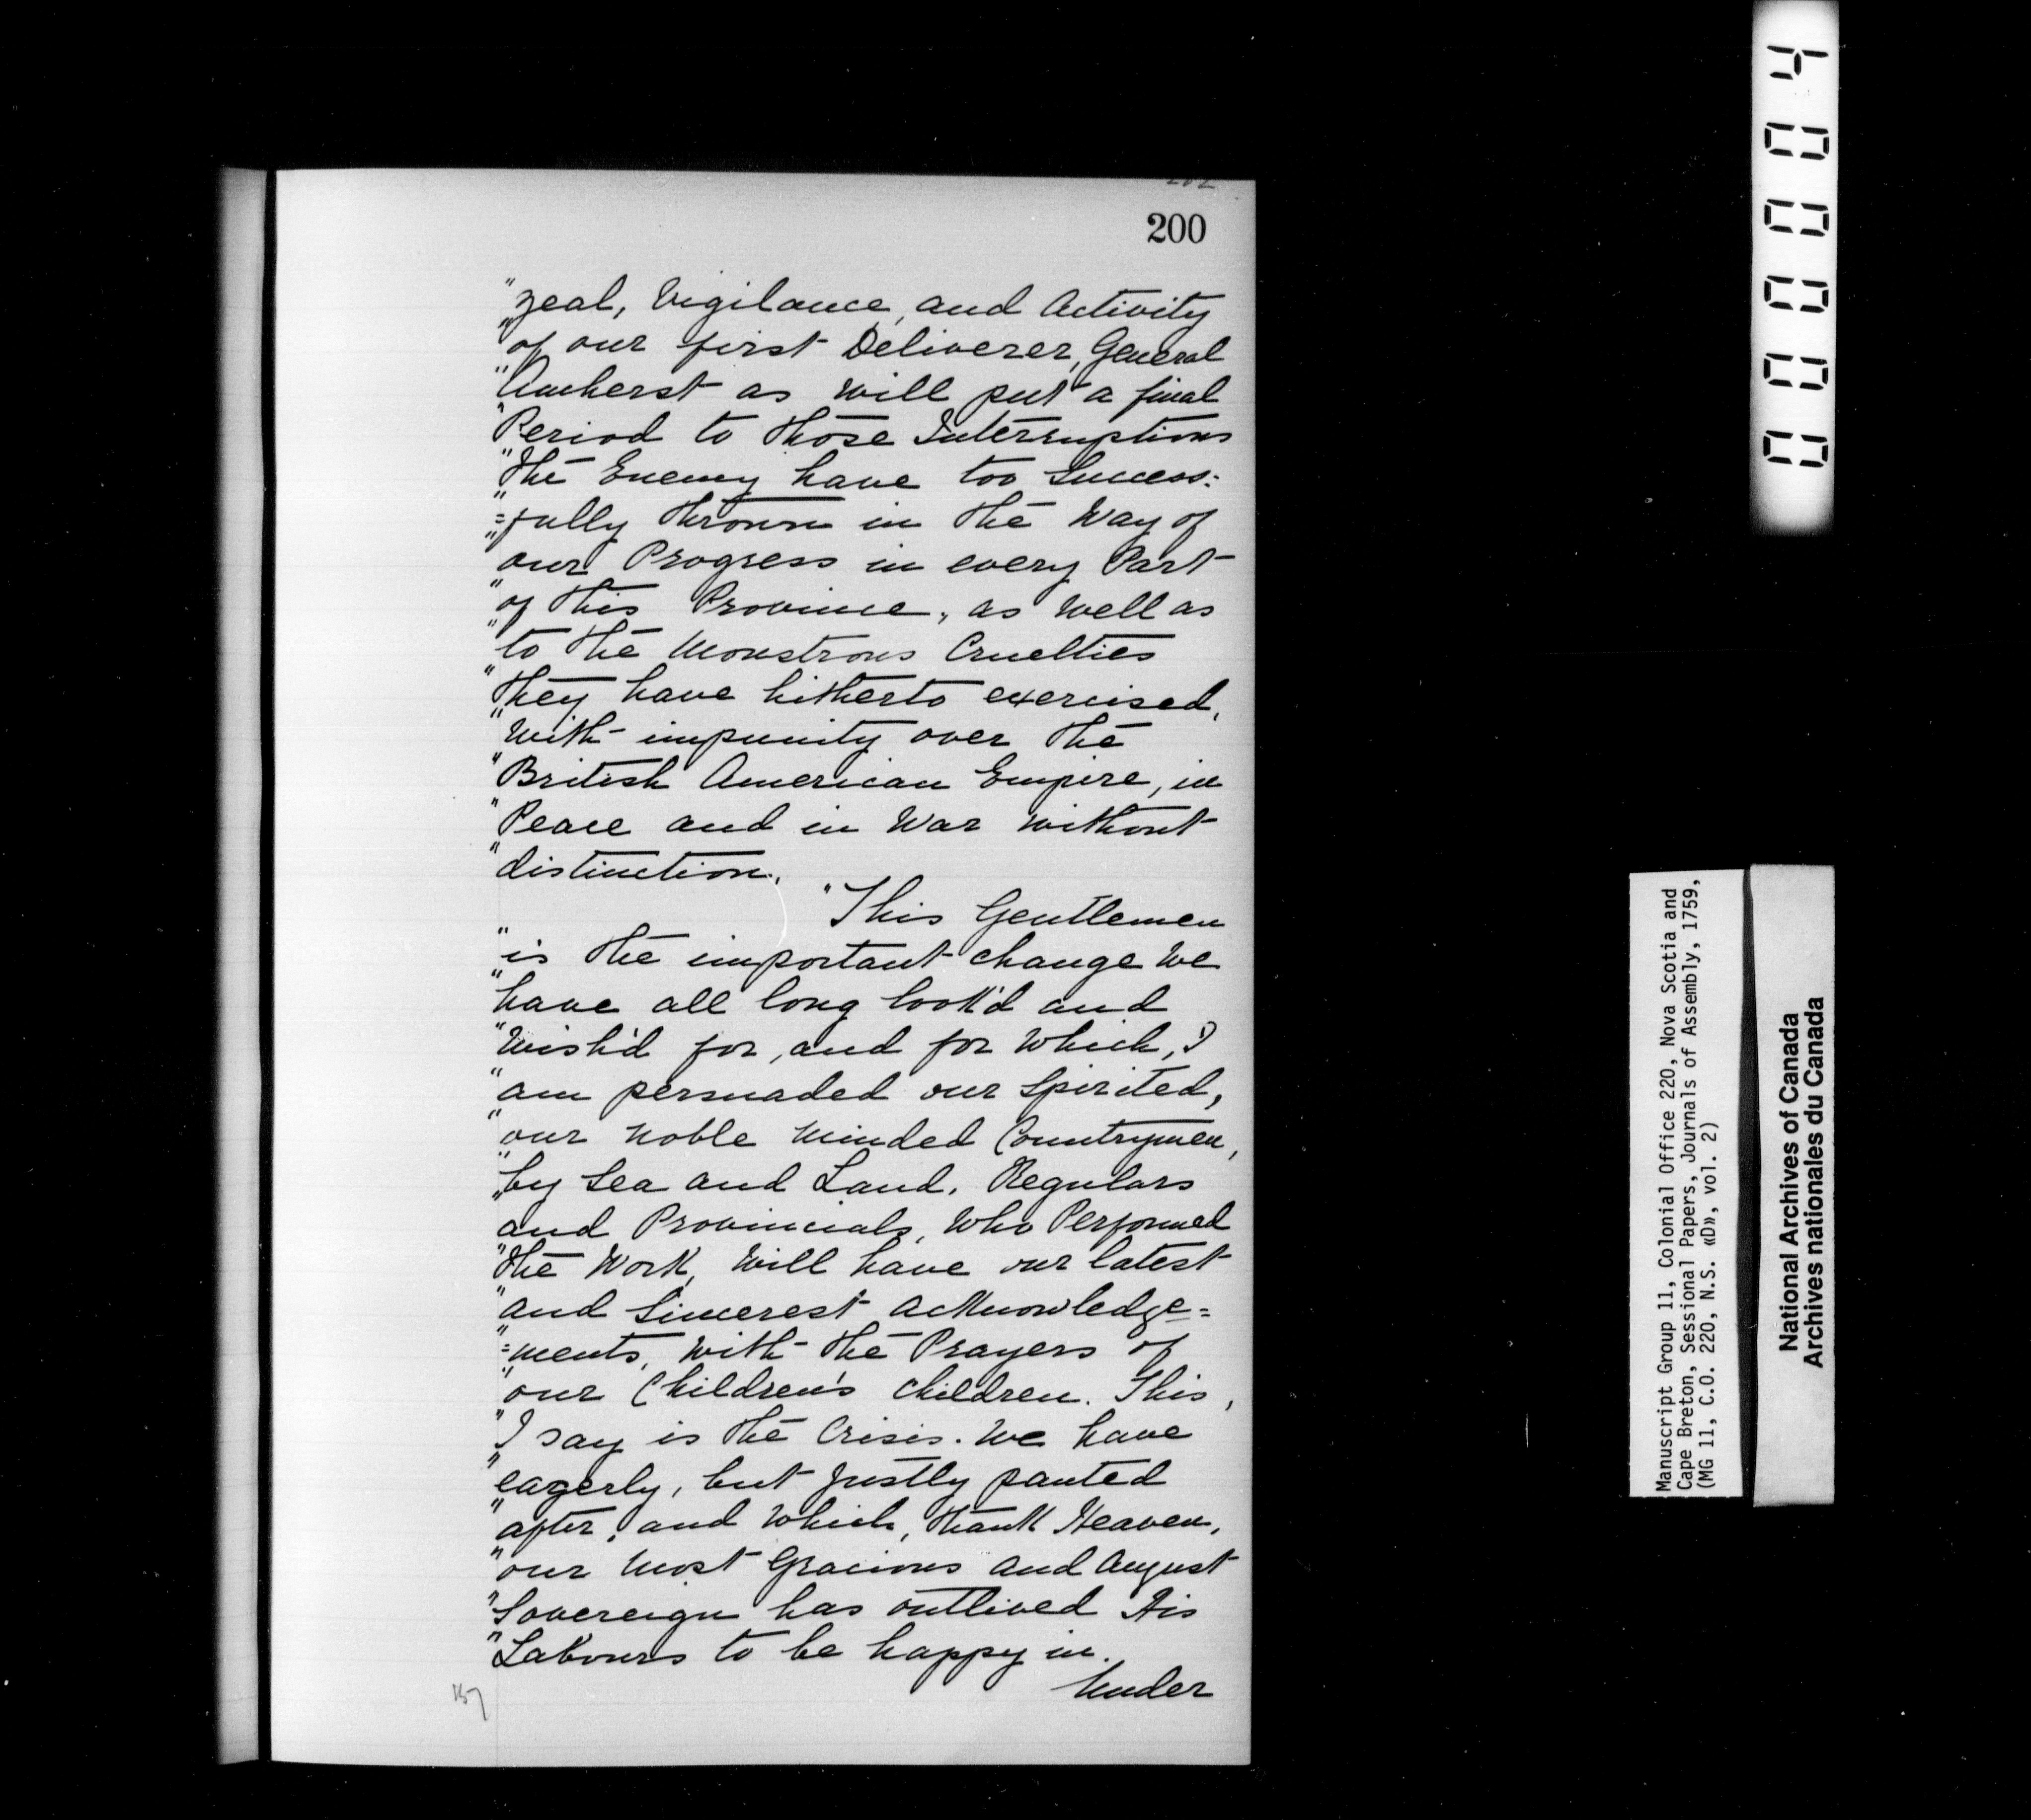 200
"zeal, Vigilance, and Activity
"of our first Deliverer, General
"Amherst as will put a final
"Period to those Interruptions
"the Enemy have too Success=
"=fully thrown in the Way of
"our Progress in every Part
"of this Province, as well as
"to the Monstrous Cruelties
"they have hitherto exercised,
"with impunity over the
"British American Empire, in
"Peace and in War without
"distinction.
"This Gentlemen
"is the important change we
"have all long look'd and
"Wish'd for, and for which, I
"am persuaded our Spirited,
"our noble minded Countrymen,
"by Sea and Land, Regulars
"and Provincials, who Performed
"the Work, will have our latest
"and Sincerest acknowledge=
"=ments, with the Prayers of
"our Children's children. This,
"I say is the Crisis. We have
"eagerly, but justly panted
"after, and which, thank Heaven,
"our most Gracious and August
"Sovereign has outlived His
"Labours to be happy in.
Under
157
000004
Manuscript Group 11, Colonial Office 220, Nova Scotia and
Cape Breton, Sessional Papers, Journals of Assembly, 1759,
(MG 11, C.O. 220, N.S. «D», vol. 2)
National Archives of Canada
Archives nationales du Canada